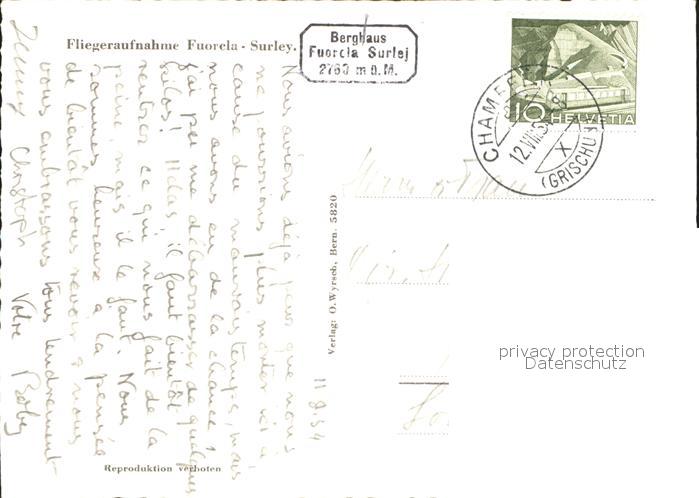 Fliegeraufnahme Fuorcla - Surley.
Berghaus
Fuorcla Surlej
2760 m ü. M.
10 HELVETIA
12.VIII.5
X
(GRISCHUN)
11 8.54
Nous avions déjà peur que nous
ne puissions plus monter ici à
cause du mauvais temps, mais
nous avons eu de la chance,
j'ai pu me débarrasser de quelques
kilos! Hélas, il faut bientôt
rentrer ce qui nous fait de la
peine, mais il le faut. Nous
sommes heureux à la pensée
de bientôt vous revoir & nous
vous embrassons tous tendrement
Christoph Votre
Verlag: O. Wyrsch, Bern. 5820
Reproduktion verboten
privacy protection
Datenschutz